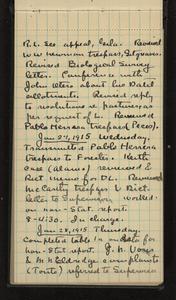 R.L. Lee appeal, Gila. Revised
W.W. Newman trespass,
Revised Biological Survey
letter. Conference with
John Utero about Los Dated
allotments. Revised reply
to resolutions re pastures, as
per request of L. Revised
Pablo Herrera trespass (Pecos).
Jan 27, 1915. Wednesday.
Transmitted Pablo Herrera
trespass to Forester. Keith
case (Alamo) reviewed &
Dist memo for DL. Revised
McCarty trespass & Dist.
letter to Supervisor, worked
on non-Stat. report.
8-4:30. In charge.
Jan 28, 1915. Thursday.
Completed table in on data for
non-Stat. report. J.M. Voris
& McHoldredge complaints
(Tonto) referred to Supervisor